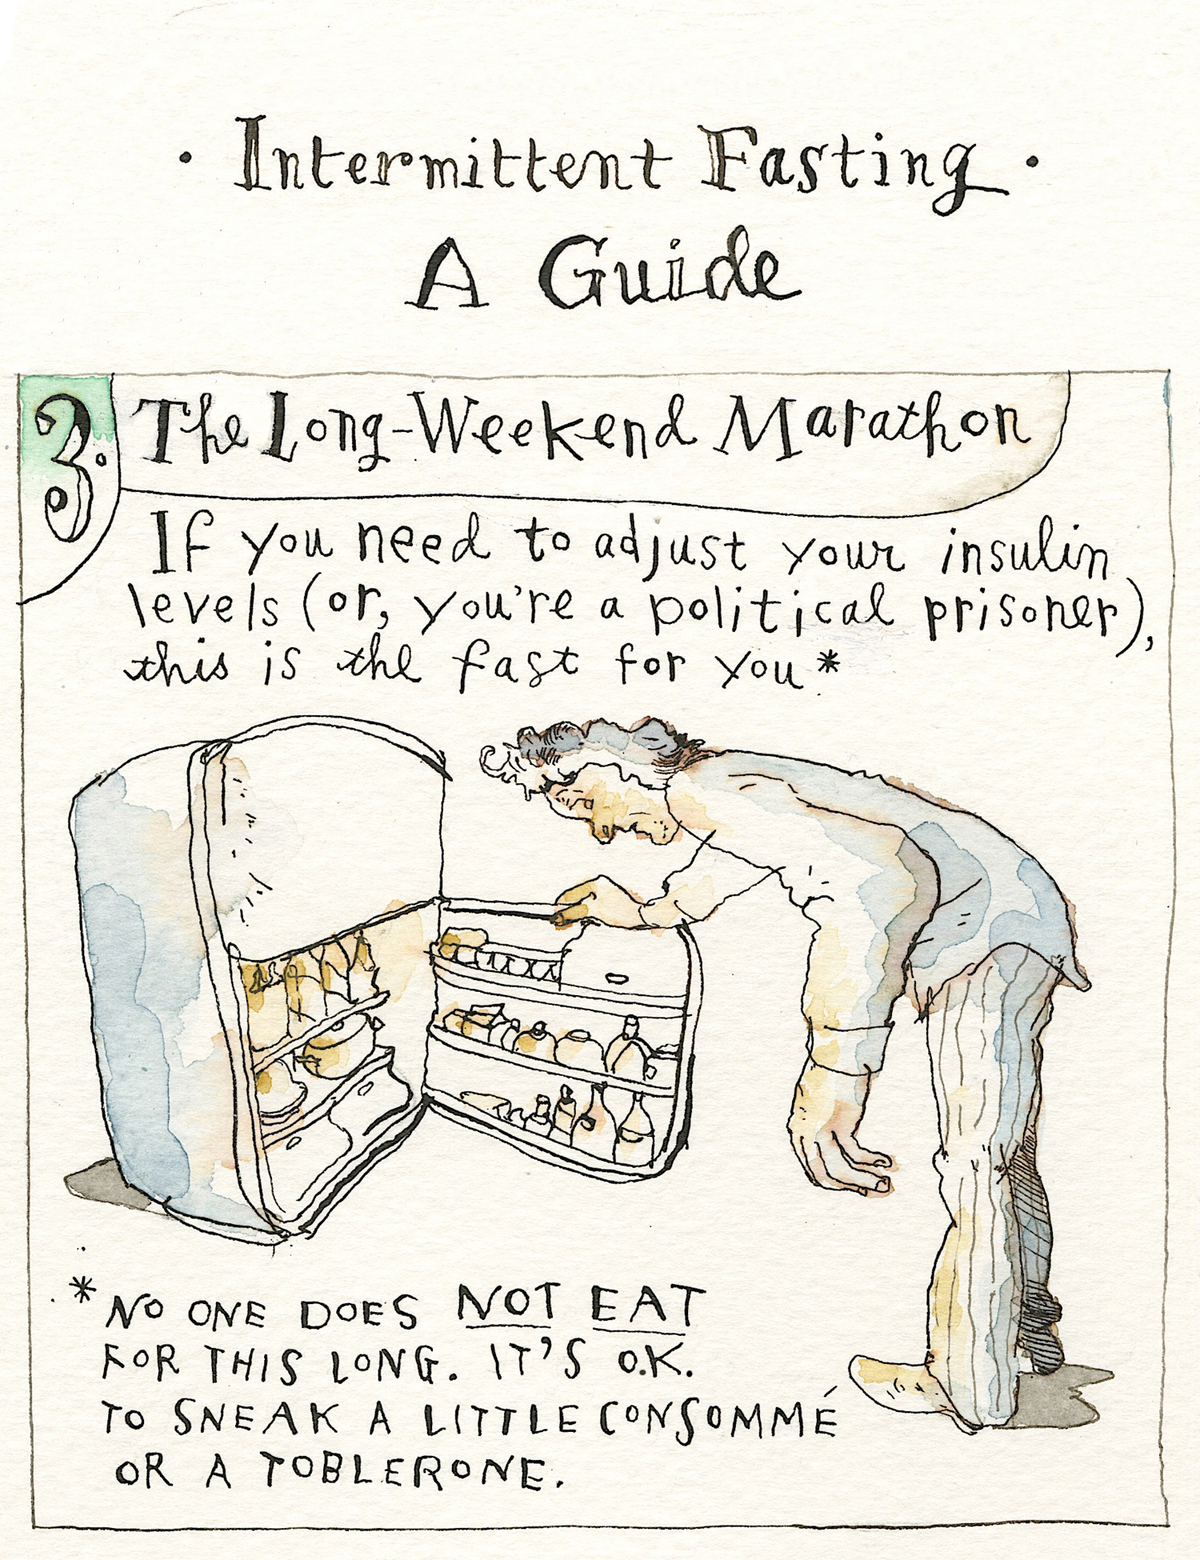 · Intermittent Fasting ·
A Guide
3. The Long-Weekend Marathon
If you need to adjust your insulin
levels (or, you're a political prisoner),
this is the fast for you*
*NO ONE DOES NOT EAT
FOR THIS LONG. IT'S O.K.
TO SNEAK A LITTLE CONSOMMÉ
OR A TOBLERONE.